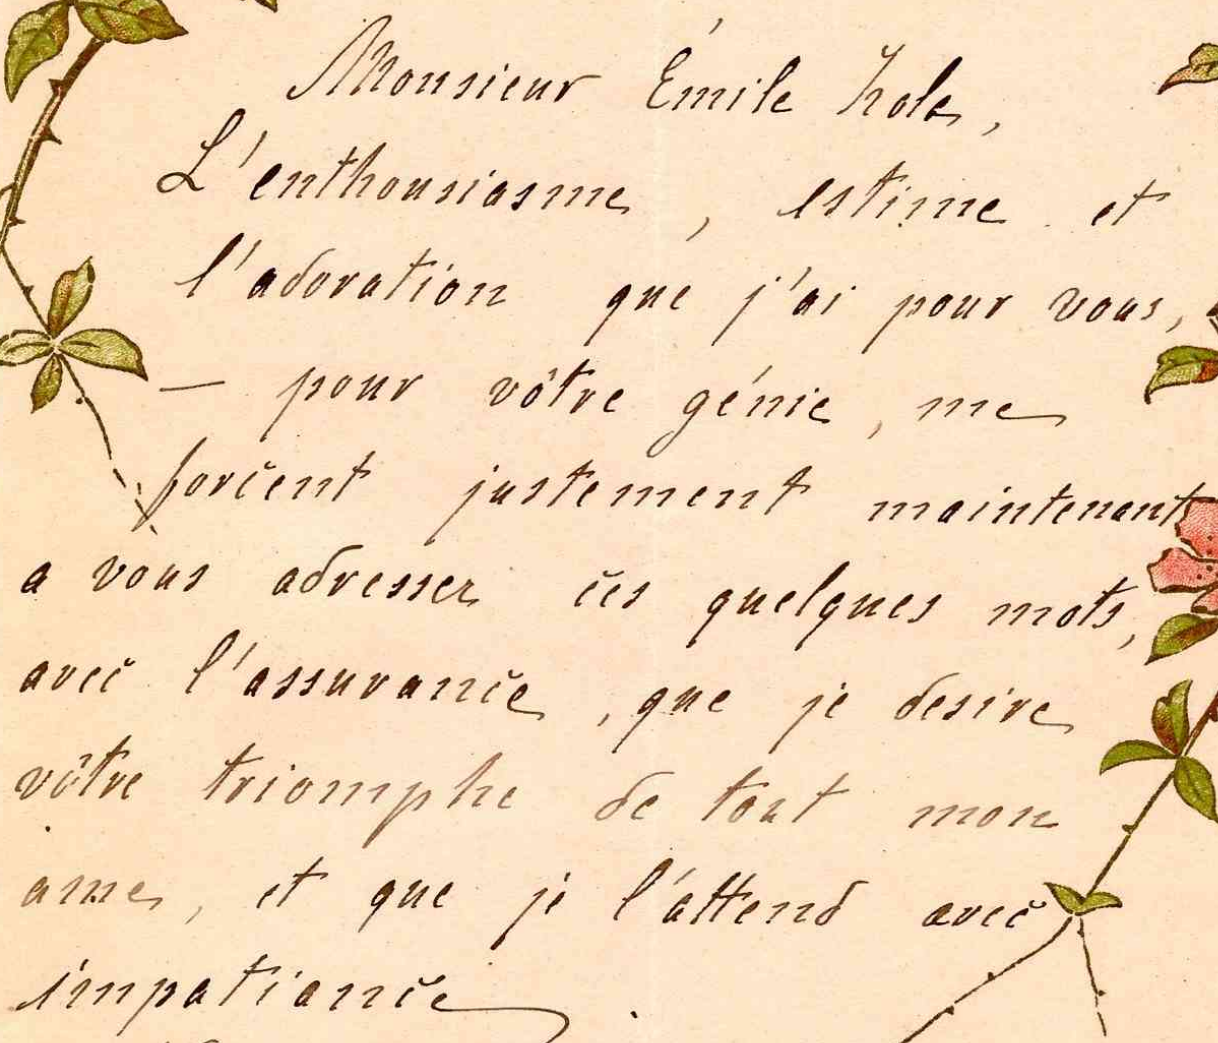 Monsieur Émile Zola,
L'enthousiasme, estime et
l'adoration que j'ai pour vous,
— pour vôtre génie, me
forcent justement maintenant
a vous adresser ces quelques mots,
avec l'assurance, que je desire
vôtre triomphe de tout mon
ame, et que je l'attend avec
impatiance.